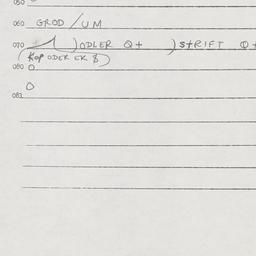 050
060 GROD/UM
070 )ADLER Q+ )STRIFT Q+
(KOP ODER EK 8)
080 O
O
081